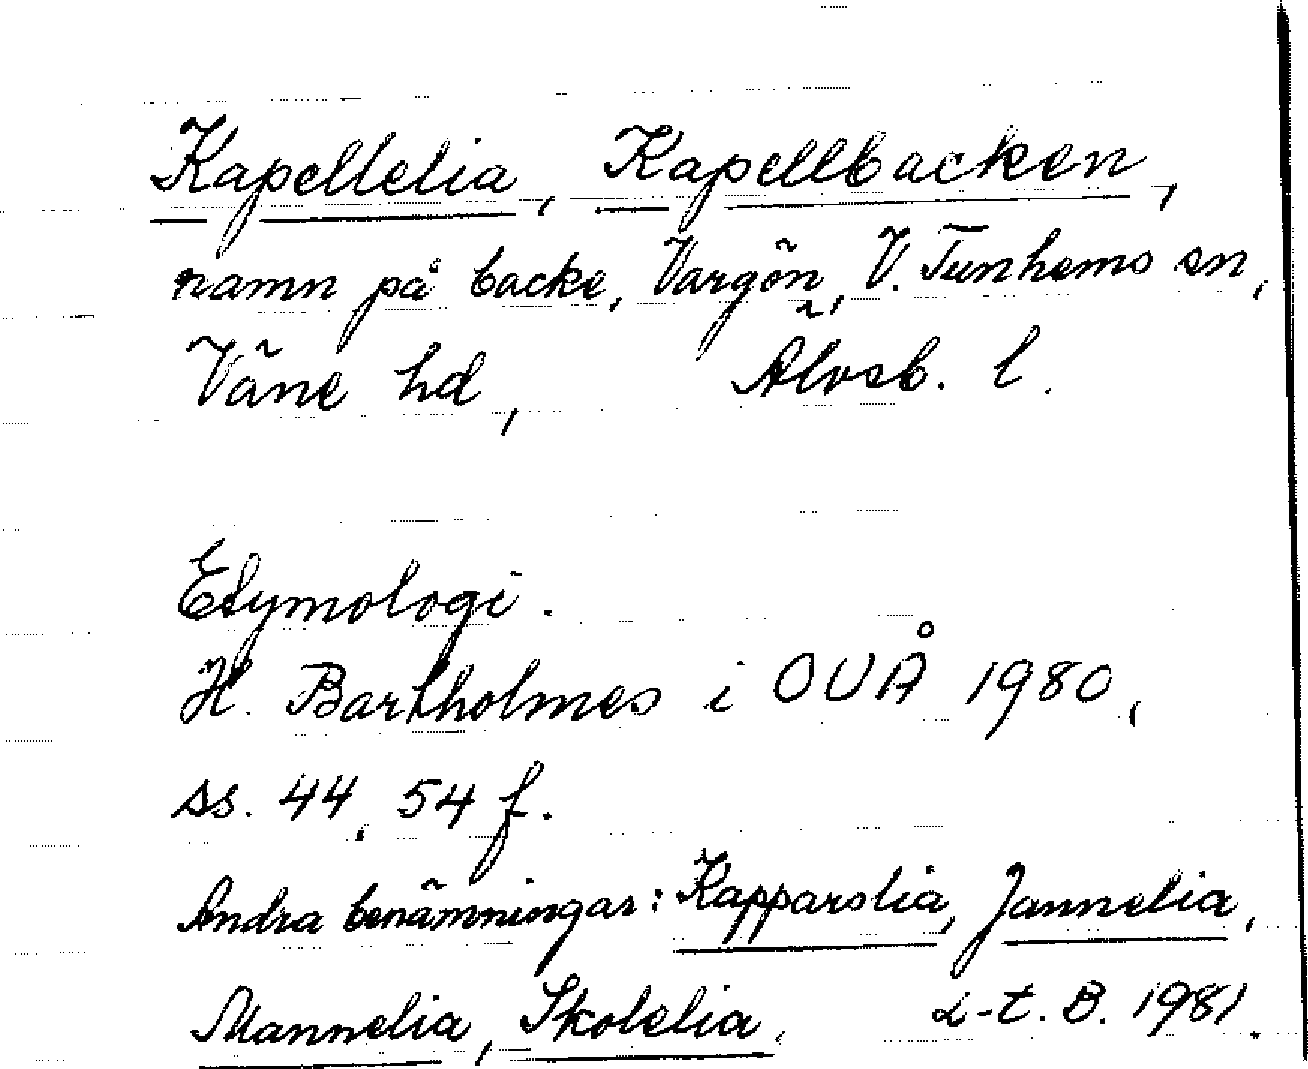 Kapellelia, Kapellbacken,
namn på backe, Vargön, V. Tunhems sn,
Väne hd, Älvsb. l.
Etymologi.
H. Bartholmes i OUÅ 1980,
ss. 44, 54 f.
Andra benämningar: Kapparslia, Jannelia,
Mannelia, Skolelia. L-t. B. 1981.